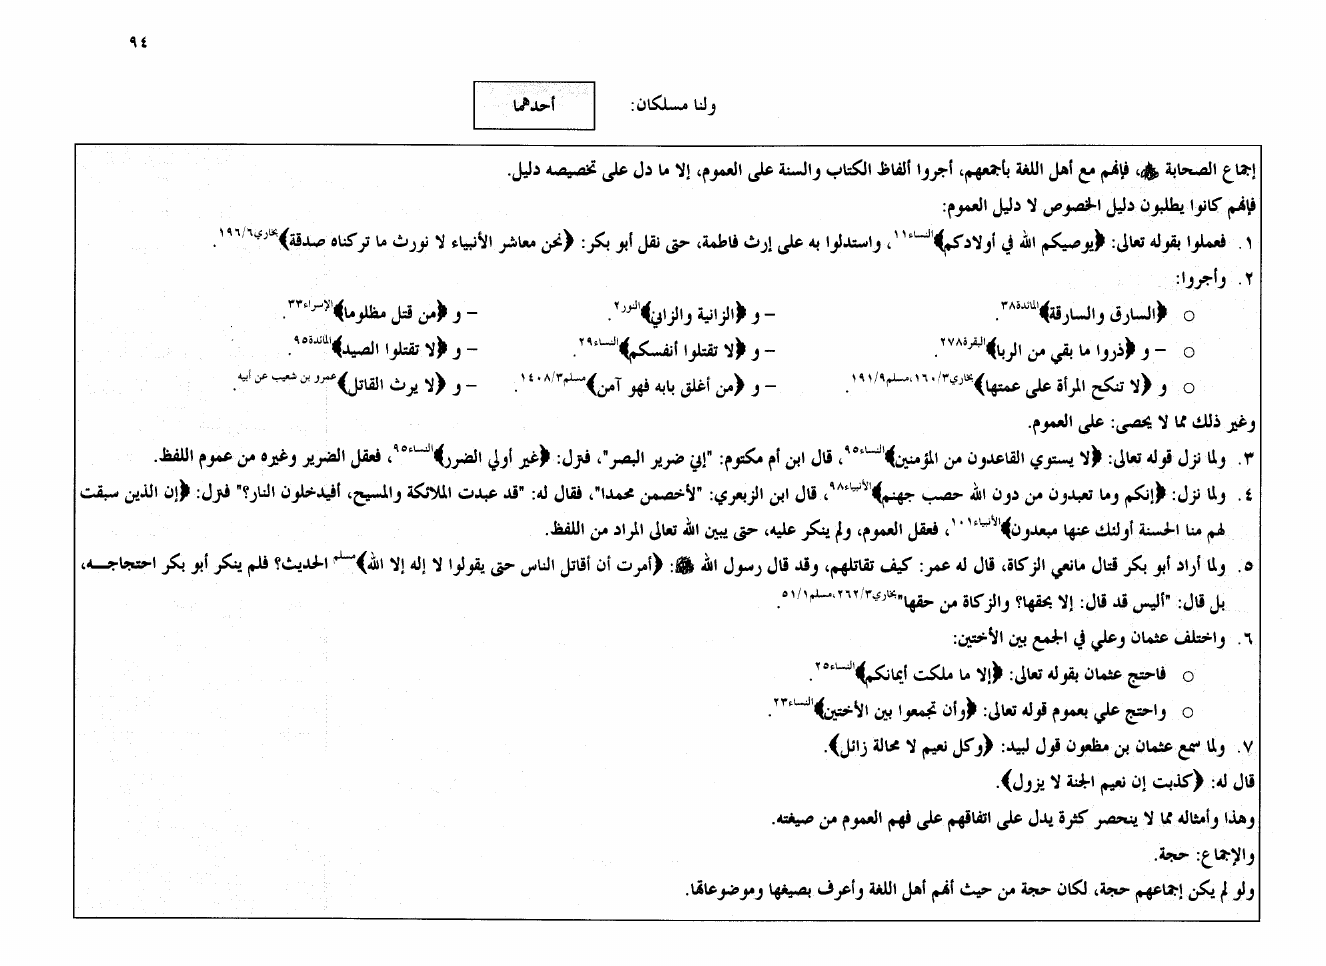 ٩٤
ولنا مسلكان: أحدهما
إجماع الصحابة ﷺ، فإنهم مع أهل اللغة بأجمعهم، أجروا ألفاظ الكتاب والسنة على العموم، إلا ما دل على تخصيصه دليل.
فإنهم كانوا يطلبون دليل الخصوص لا دليل العموم:
١. فعملوا بقوله تعالى: ﴿يوصيكم الله في أولادكم﴾النساء١١، واستدلوا به على إرث فاطمة، حتى نقل أبو بكر: ﴿نحن معاشر الأنبياء لا نورث ما تركناه صدقة﴾بخاري١٩٦/٦.
٢. وأجروا:
○ ﴿السارق والسارقة﴾المائدة٣٨. – و ﴿الزانية والزاني﴾النور٢. – و ﴿من قتل مظلوما﴾الإسراء٣٣.
○ – و ﴿ذروا ما بقي من الربا﴾البقرة٢٧٨. – و ﴿لا تقتلوا أنفسكم﴾النساء٢٩. – و ﴿لا تقتلوا الصيد﴾المائدة٩٥.
○ و ﴿لا تنكح المرأة على عمتها﴾بخاري١٦٠/٣،مسلم١٩١/٩. – و ﴿من أغلق بابه فهو آمن﴾مسلم١٤٠٨/٣. – و ﴿لا يرث القاتل﴾عمرو بن شعيب عن أبيه.
وغير ذلك مما لا يحصى: على العموم.
٣. ولما نزل قوله تعالى: ﴿لا يستوي القاعدون من المؤمنين﴾النساء٩٥، قال ابن أم مكتوم: "إني ضرير البصر"، فنزل: ﴿غير أولي الضرر﴾النساء٩٥، فعقل الضرير وغيره من عموم اللفظ.
٤. ولما نزل: ﴿إنكم وما تعبدون من دون الله حصب جهنم﴾الأنبياء٩٨، قال ابن الزبعري: "لأخصمن محمدا"، فقال له: "قد عبدت الملائكة والمسيح، أفيدخلون النار؟" فنزل: ﴿إن الذين سبقت
لهم منا الحسنة أولئك عنها مبعدون﴾الأنبياء١٠١، فعقل العموم، ولم ينكر عليه، حتى يبين الله تعالى المراد من اللفظ.
٥. ولما أراد أبو بكر قتال مانعي الزكاة، قال له عمر: كيف تقاتلهم، وقد قال رسول الله ﷺ: ﴿أمرت أن أقاتل الناس حتى يقولوا لا إله إلا الله﴾مسلم الحديث؟ فلم ينكر أبو بكر احتجاجـــه،
بل قال: "أليس قد قال: إلا بحقها؟ والزكاة من حقها"بخاري٢٦٢/٣،مسلم٥١/١.
٦. واختلف عثمان وعلي في الجمع بين الأختين:
○ فاحتج عثمان بقوله تعالى: ﴿إلا ما ملكت أيمانكم﴾النساء٢٥.
○ واحتج علي بعموم قوله تعالى: ﴿وأن تجمعوا بين الأختين﴾النساء٢٣.
٧. ولما سمع عثمان بن مظعون قول لبيد: ﴿وكل نعيم لا محالة زائل﴾.
قال له: ﴿كذبت إن نعيم الجنة لا يزول﴾.
وهذا وأمثاله مما لا ينحصر كثرة يدل على اتفاقهم على فهم العموم من صيغته.
والإجماع: حجة.
ولو لم يكن إجماعهم حجة، لكان حجة من حيث أنهم أهل اللغة وأعرف بصيغها وموضوعاتها.